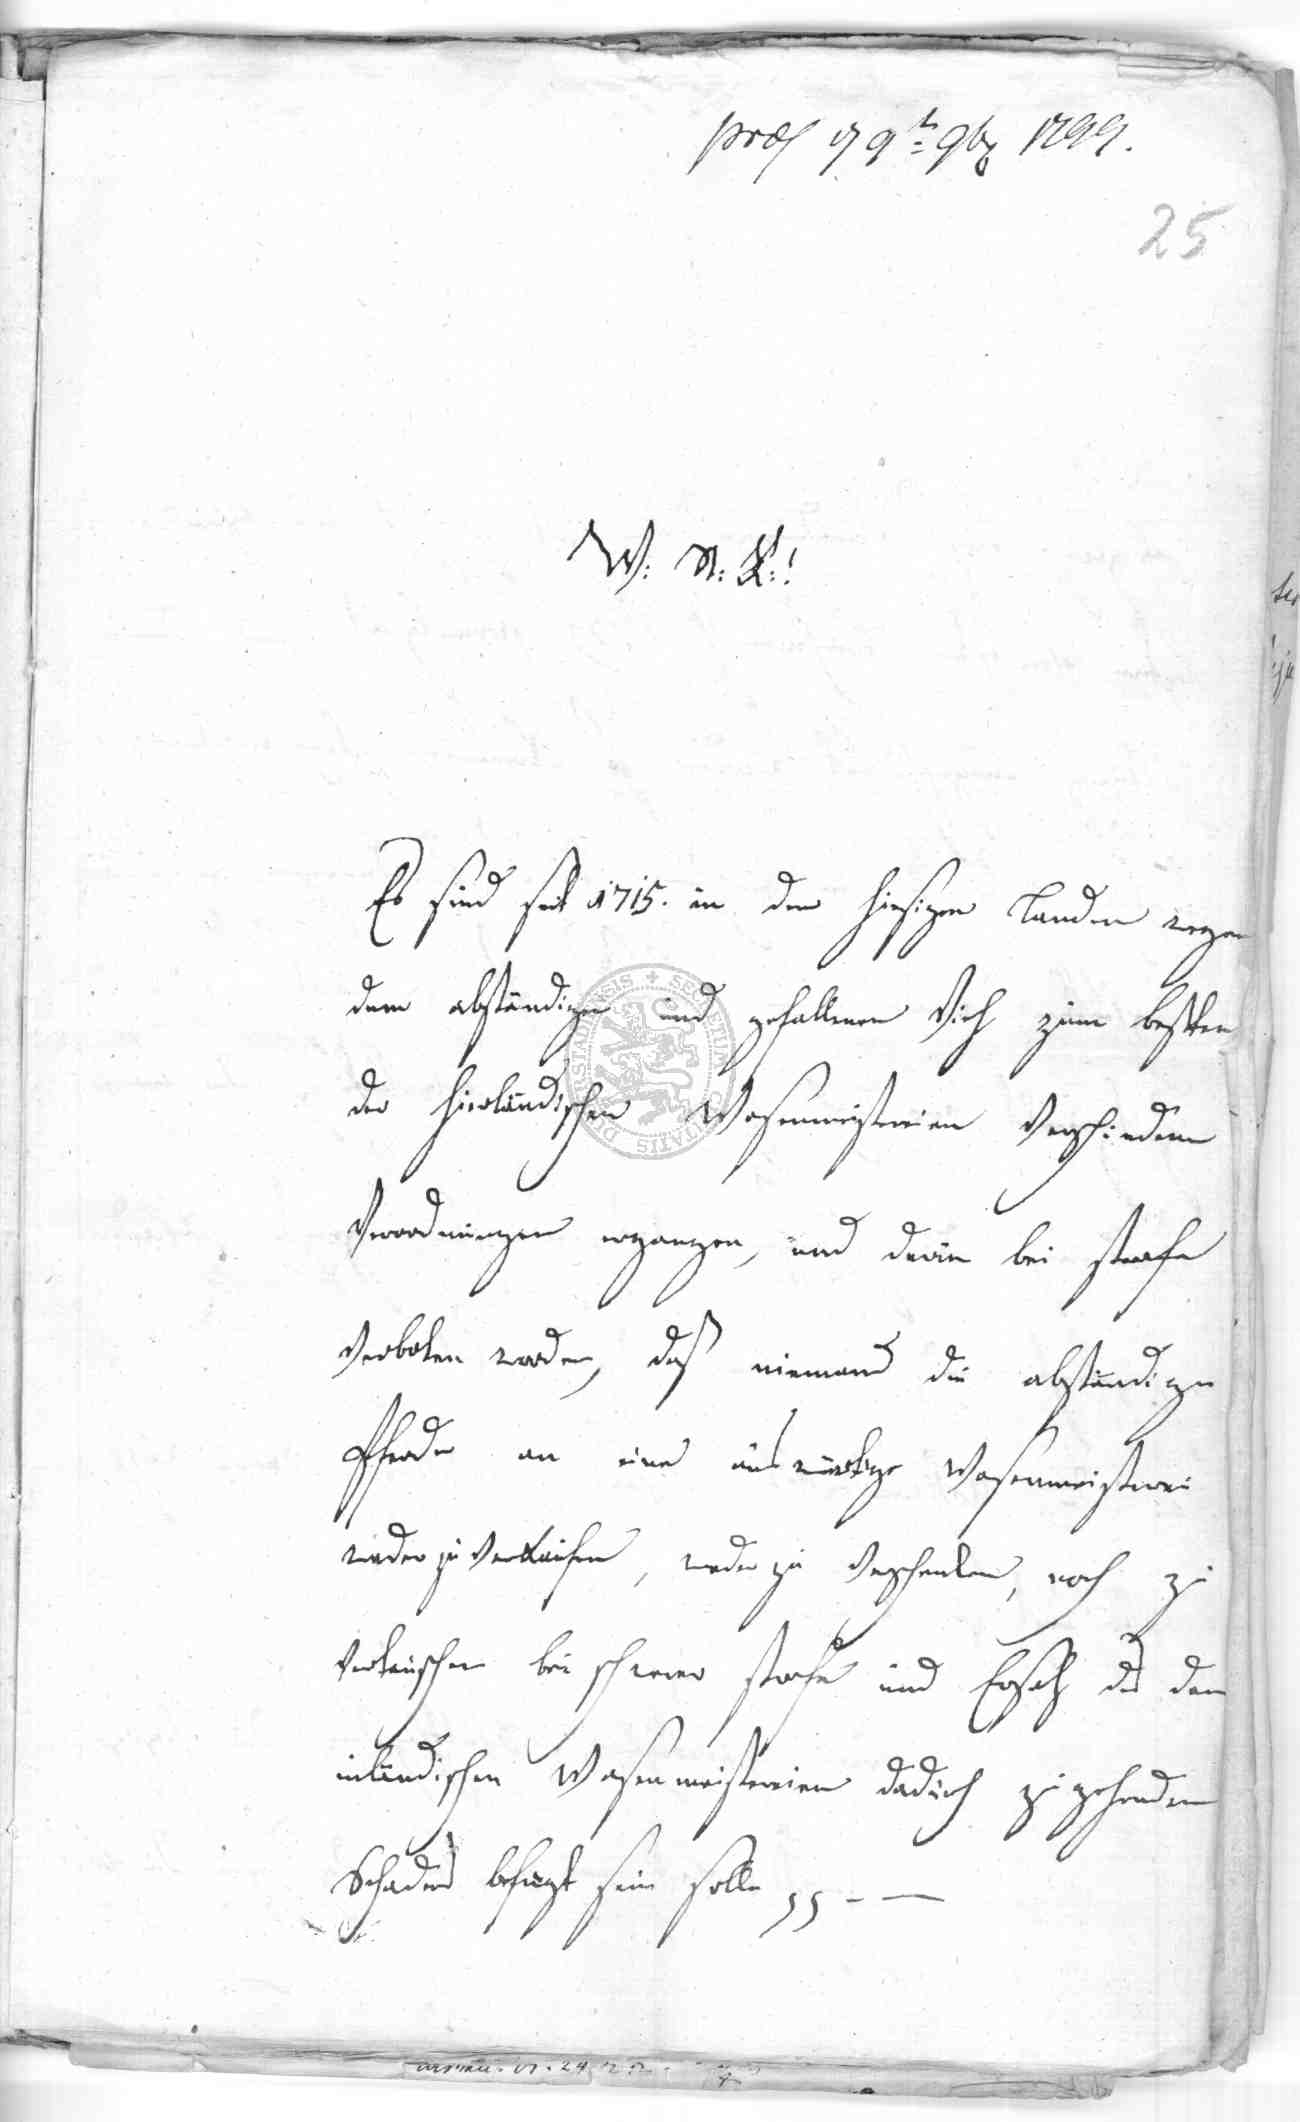 præs d 9t 9br 1799.
25
W: A: K:!
Es sind seit 1715. in den hiesigen Landen wegen
dem abständigen und gefallenen Vieh zum besten
der hierländischen Wasenmeistereien Verschiedene
Verordnungen ergangen, und darin bei strafe
verboten worden, daß niemand die abständigen
Pferde an eine auswärtige Wasenmeisterei
weder zu verkaufen, weder zu verschenken, noch zu
vertauschen bei schwerer strafe und Ersatz des den
inländischen Wasenmeistereien dadurch zugehenden
Schadens befugt sein solle
SECRETUM CIVITATIS DARMSTATIENSIS